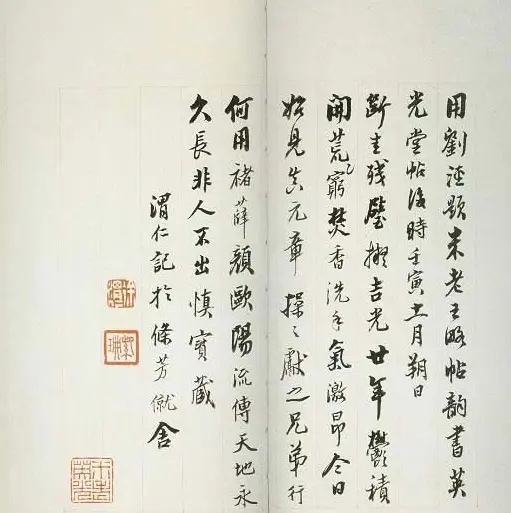 用劉涇題米老王略帖韻書英
光堂帖後時壬寅十一月朔日
斷圭殘璧擬吉光廿年鬱積
開荒窮焚香洗手氣激昂今日
始見真元章操之獻之兄弟行
何用褚薛顏歐陽流傳天地永
久長非人不出慎寶藏
渭仁記於條芳僦舍
紫珊